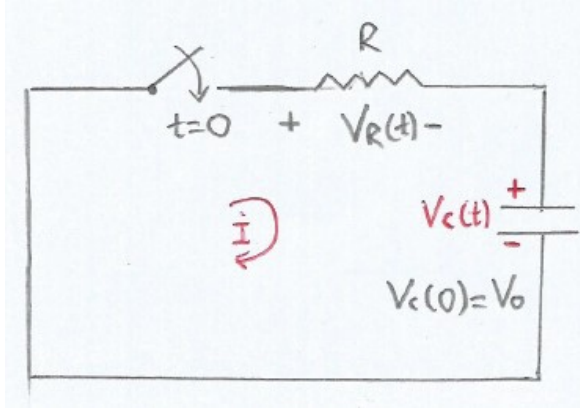 R
t=0 + VR(t) -
+
Vc(t)
i
-
Vc(0)=Vo